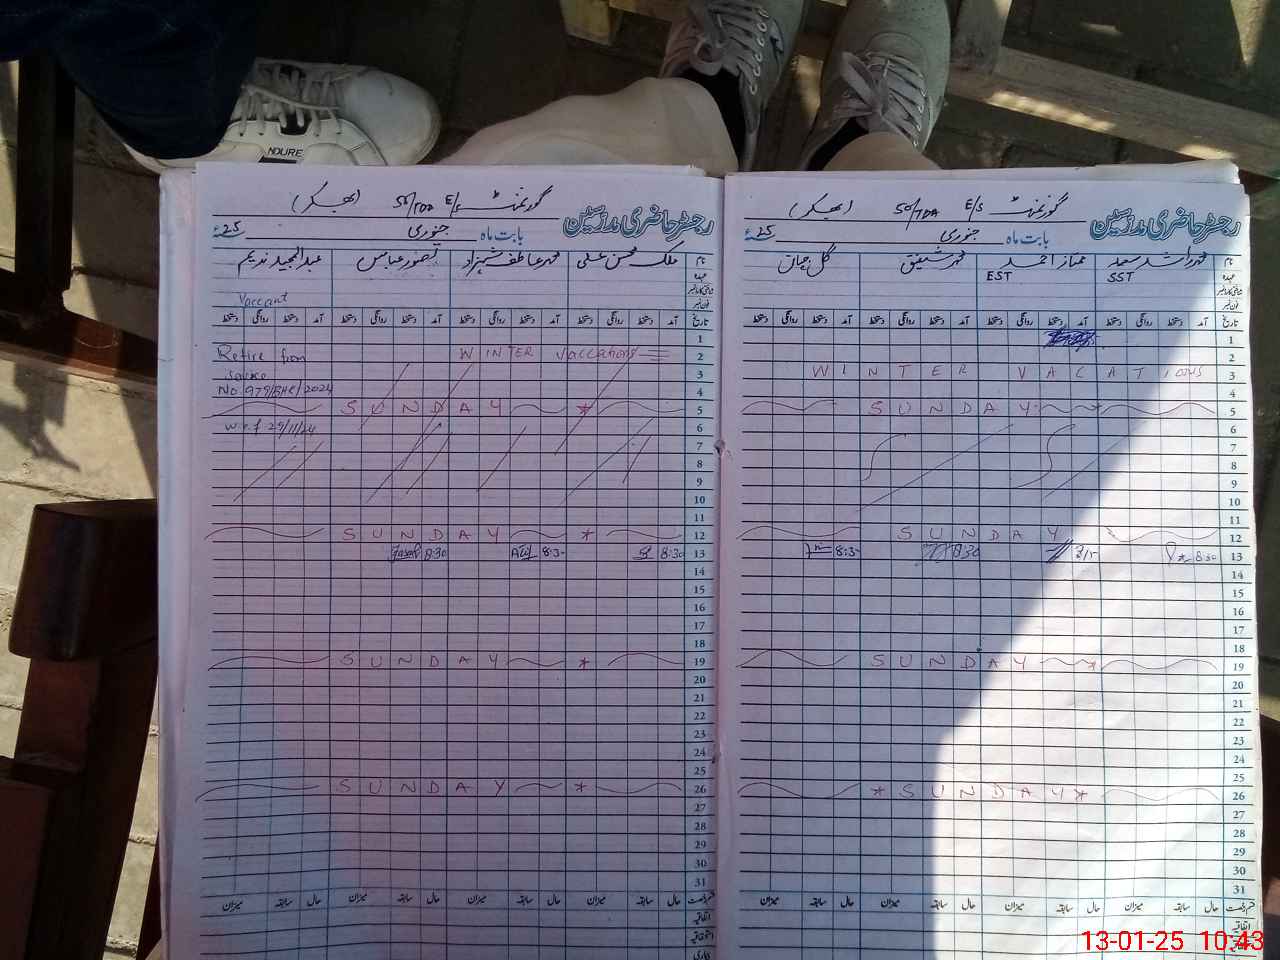 NDURE
گورنمنٹ E/S 50/TDA (بھکر)
رجسٹر حاضری مدرسین
بابت ماہ جنوری 25
نام محمد راشد سعید ممتاز احمد محمد شفیق گل جہاں
عہدہ SST EST
تاریخ آمد دستخط روانگی دستخط آمد دستخط روانگی دستخط آمد دستخط روانگی دستخط آمد دستخط روانگی دستخط
1
2
3 WINTER VACATIONS
4
5 SUNDAY
6
7
8
9
10
11
12 SUNDAY
13 8:30 8:30 8:3-
14
15
16
17
18
19 SUNDAY
20
21
22
23
24
25
26 * SUNDAY *
27
28
29
30
31
حال سابقہ میزان حال سابقہ میزان حال سابقہ میزان حال سابقہ میزان
اتفاقیہ
گورنمنٹ E/S 50/TDA (بھکر)
رجسٹر حاضری مدرسین
بابت ماہ جنوری 25
ملک محسن علی محمد عاطف شہزاد تصور عباس عبدالمجید ندیم
Vaccant
آمد دستخط روانگی دستخط آمد دستخط روانگی دستخط آمد دستخط روانگی دستخط آمد دستخط روانگی دستخط
1
2 Retire from WINTER Vaccations
3
4 No. 979/BHK/2024
5 SUNDAY *
6 w.e.f 29/11/24
7
8
9
10
11
12 SUNDAY *
13 8:30 Atif 8:3- 8:30
14
15
16
17
18
19 SUNDAY *
20
21
22
23
24
25
26 SUNDAY *
27
28
29
30
31
حال سابقہ میزان حال سابقہ میزان حال سابقہ میزان حال سابقہ میزان
13-01-25 10:43